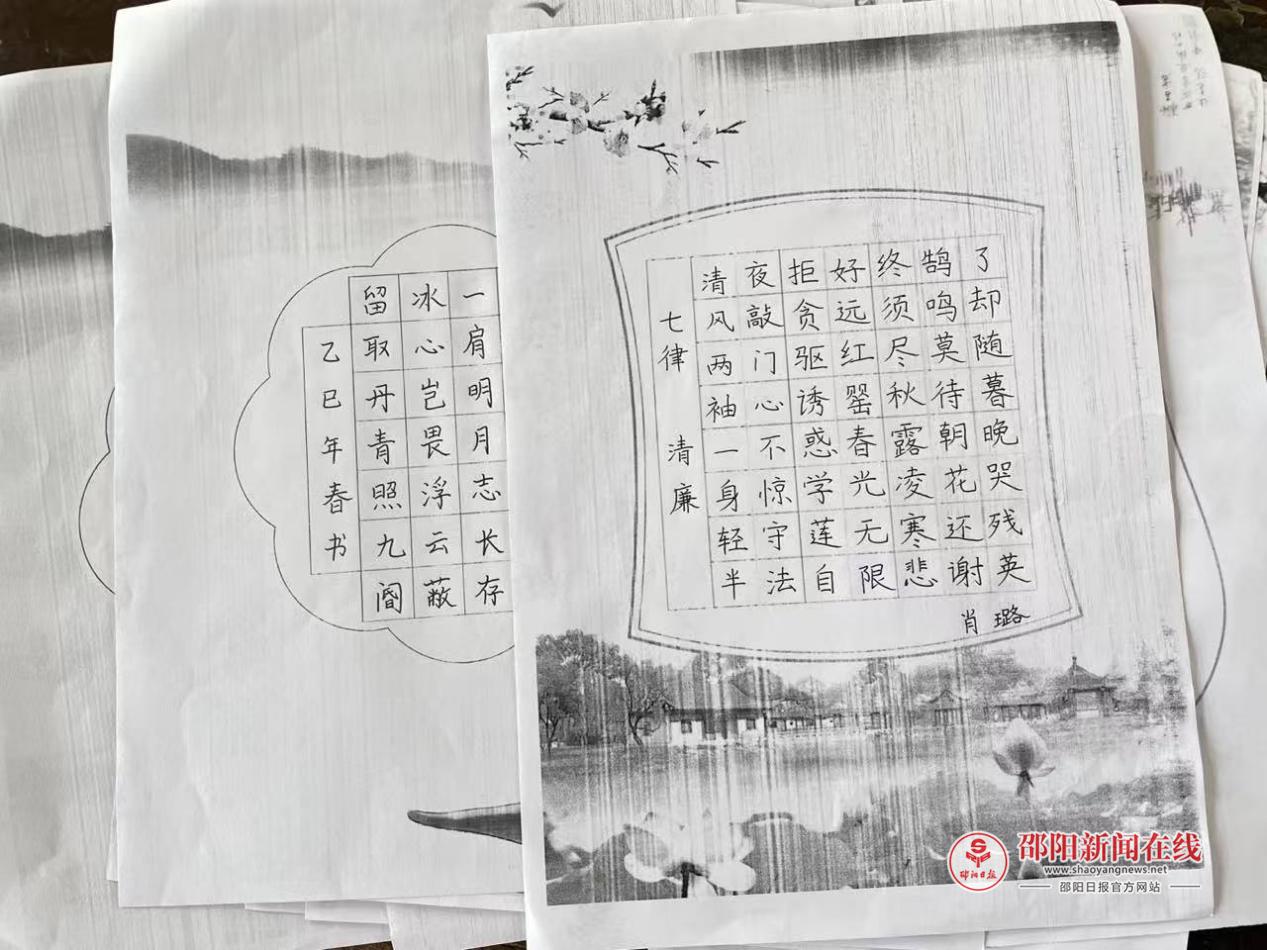 一肩明月志长存
冰心岂畏浮云蔽
留取丹青照九阍
乙巳年春书
七律 清廉
清风两袖一身轻半
夜敲门心不惊守法
拒贪驱诱惑学莲自
好远红罂春光无限
终须尽秋露凌寒悲
鹄鸣莫待朝花还谢
了却随暮晚哭残英
肖璐
邵阳日报
邵阳新闻在线
www.shaoyangnews.net
邵阳日报官方网站